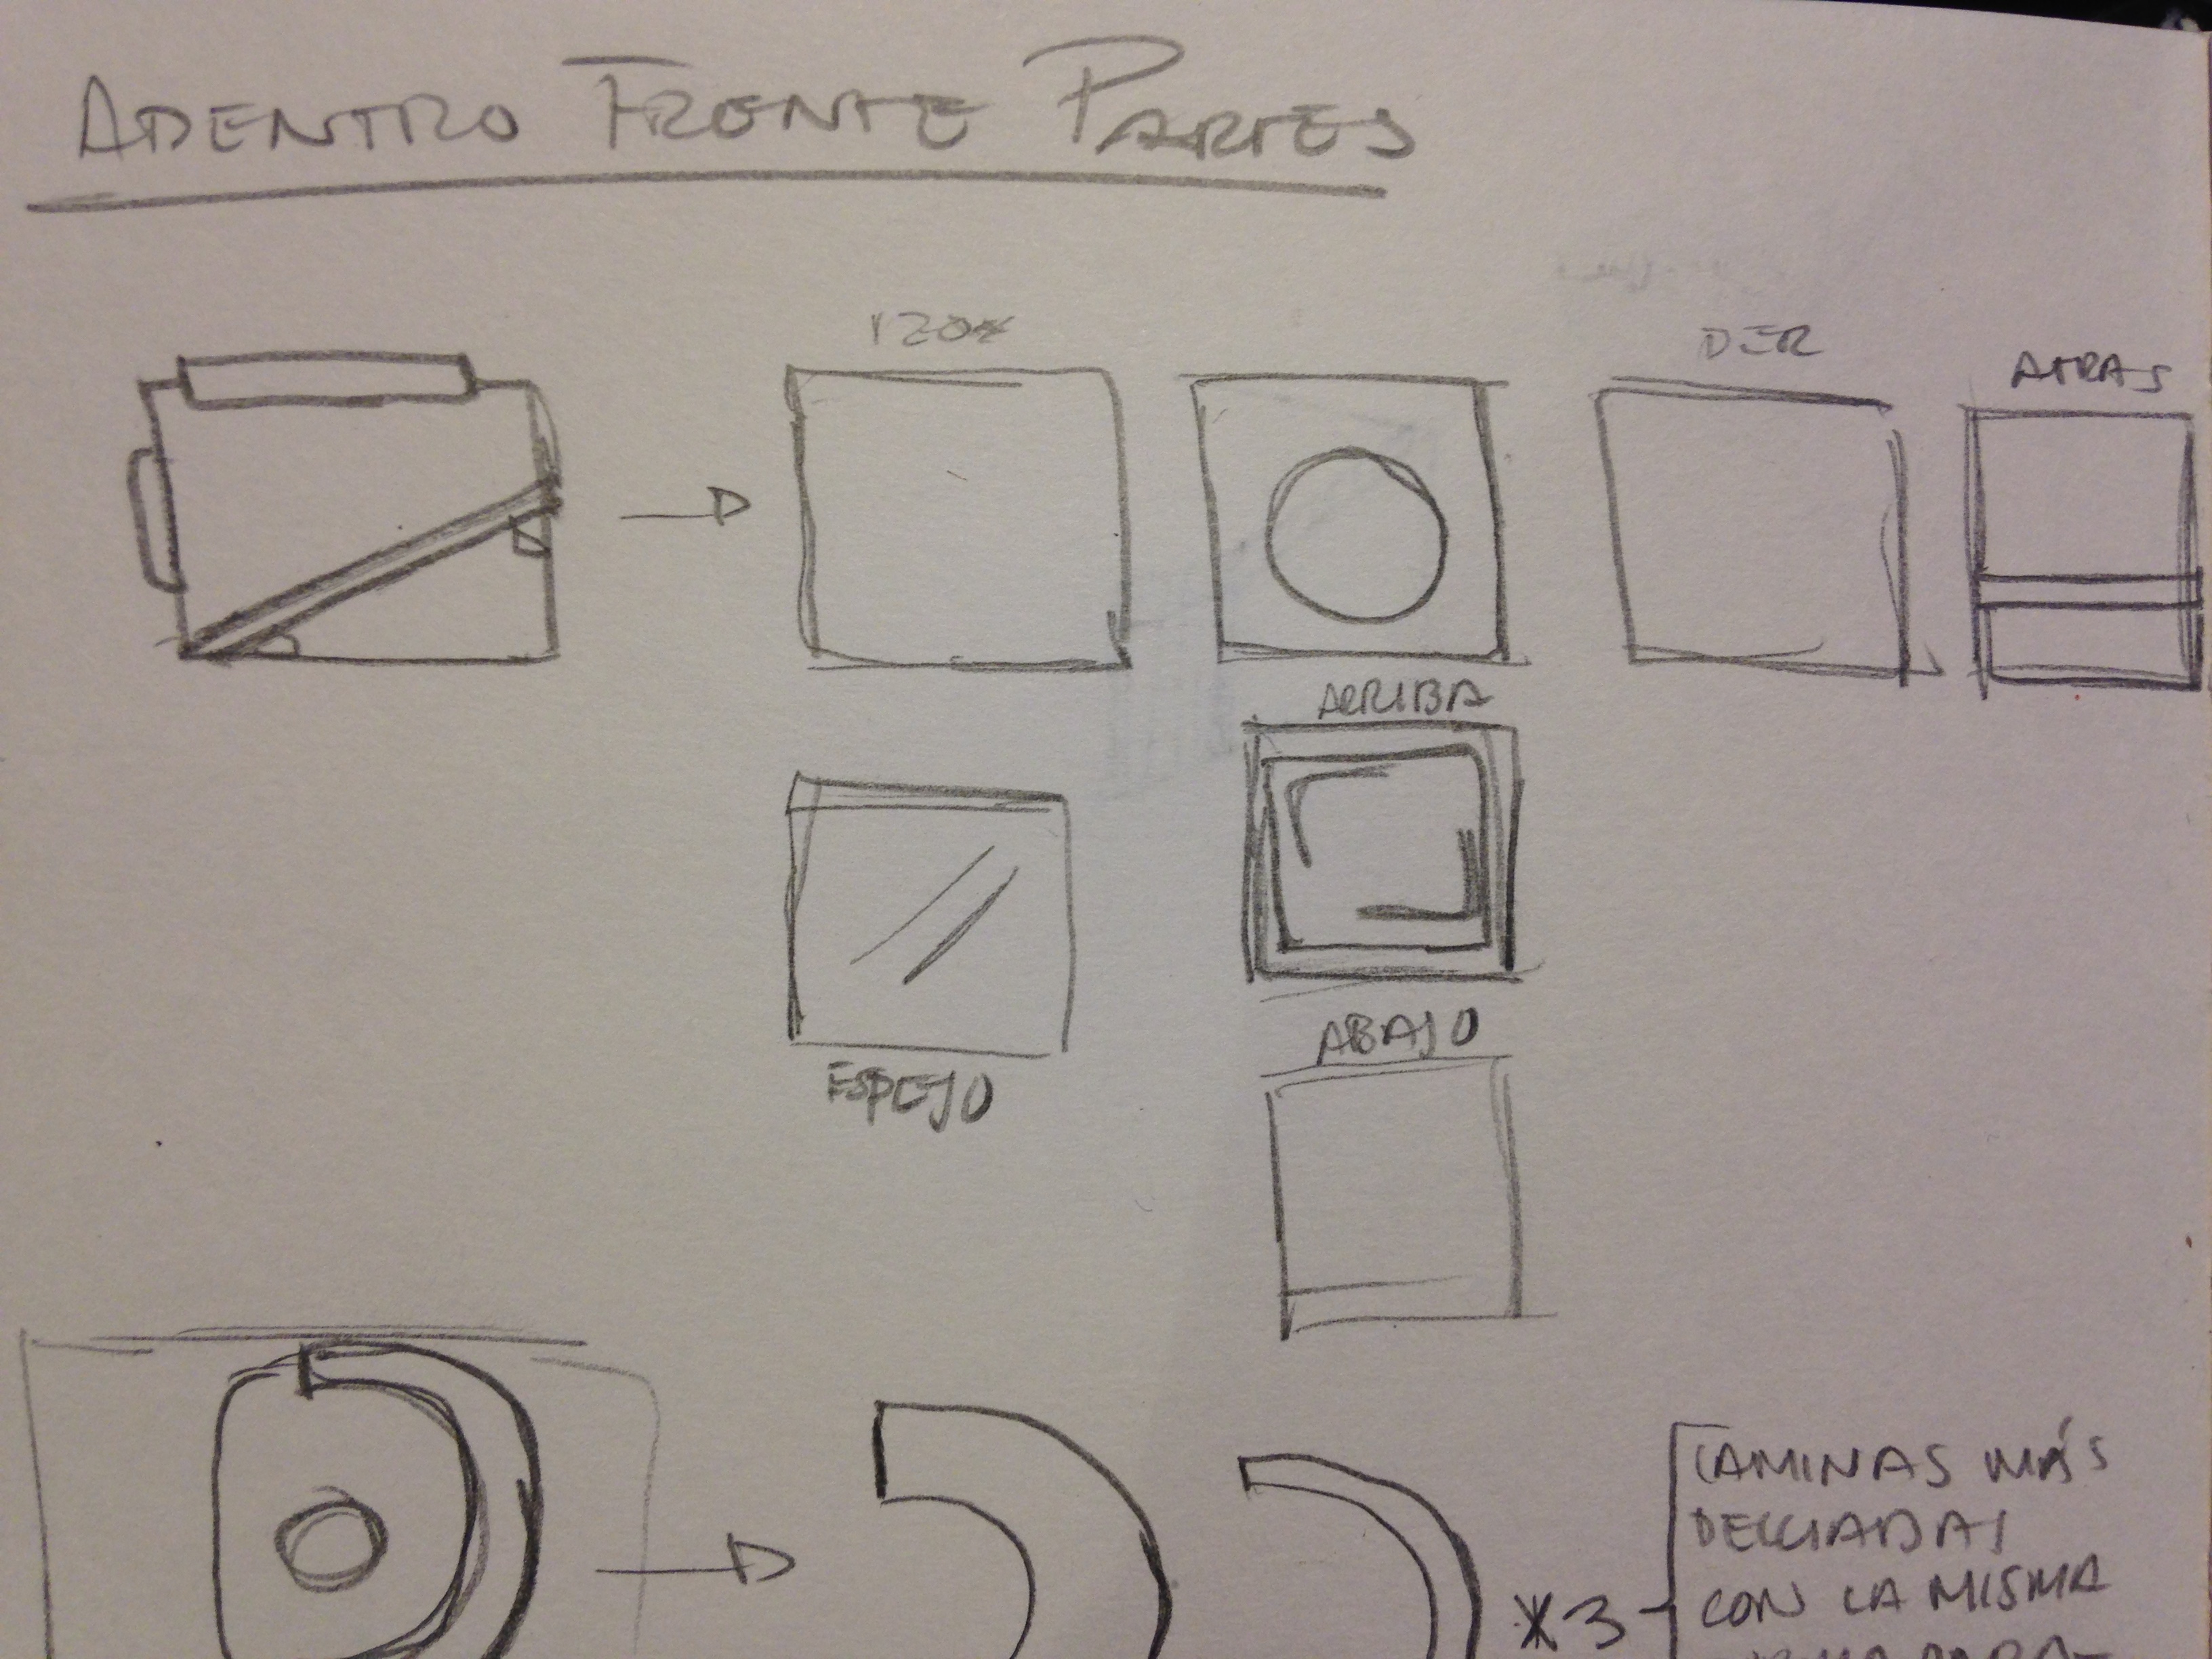 ADENTRO FRENTE PARTES
IZQ
DER
ATRAS
ARRIBA
ESPEJO
ABAJO
LAMINAS MÁS
DELGADAS
CON LA MISMA
X3